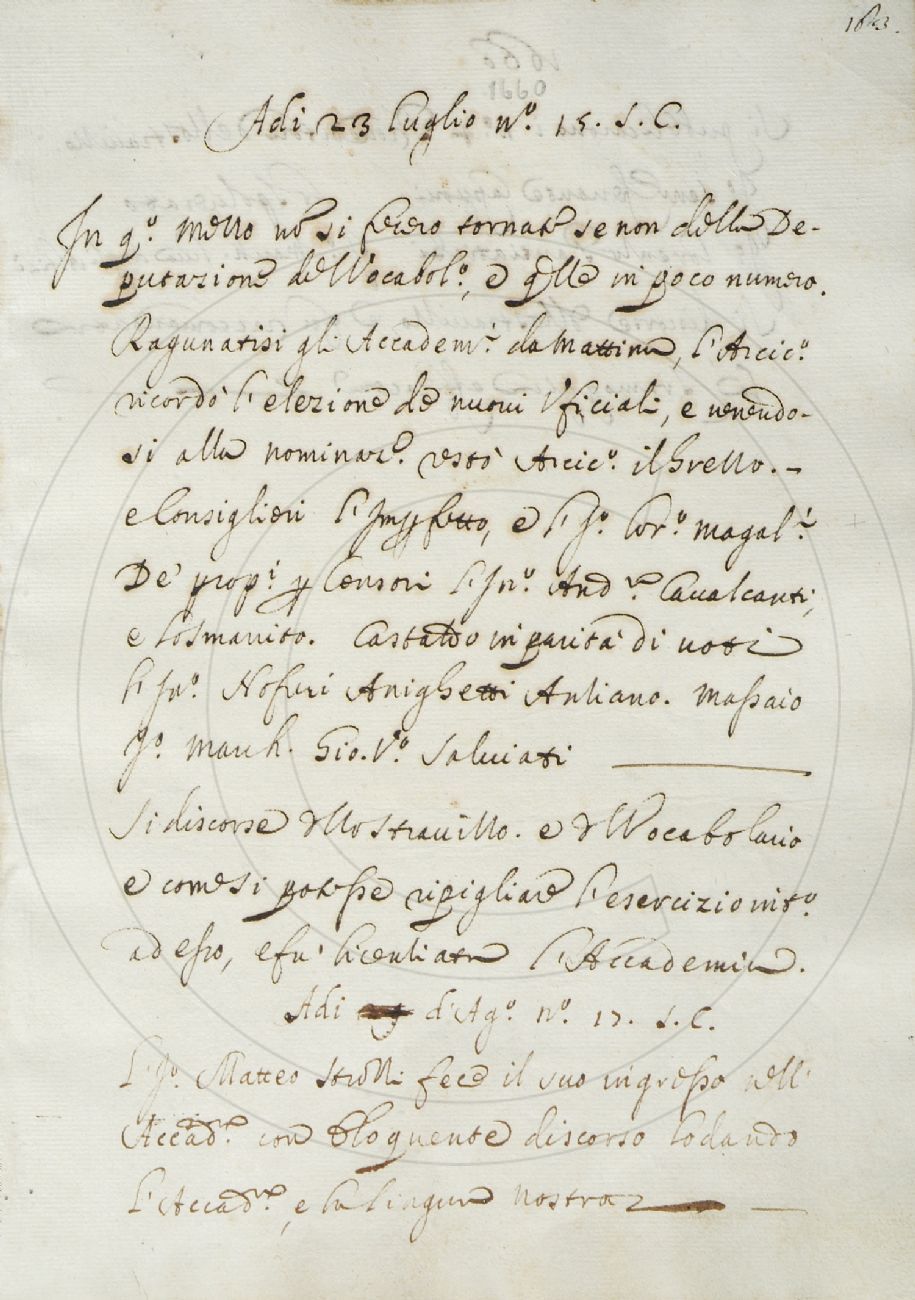 Adi 23 Luglio n.º 15. S. C.
In q.º mezzo nõ si fecero tornate se non della De-
putazione del Vocabol.º, e q̃lle in poco numero.
Ragunatisi gli Accadem.i da mattina, l'Arcic.º
ricordò l'elezione de nuovi Uficiali, e venendo-
si alla nominaz.e restò Arcic.º il Gretto. -
e Consiglieri l' Imꝑfetto, e l' S.º Lor.º Magal.i
De' prop.i ꝑ Censori l' In.º And.rea Cavalcanti,
e lo Smarrito. Castaldo in parità di voti
l' In.º Nofri Anighetti Antiano. Massaio
S.º March. Gio. V.º Salviati
Si discorse dello Stravizzo. e del Vocabolario
e come si potesse ripigliare l'esercizio int.º
ad esso, e fu licenziata l'Accademia.
Adi d'Ag.º n.º 17. S. C.
L' S.º Matteo Strozzi fece il suo ingresso nell'
Accad.a con eloquente discorso lodando
l'Accad.a, e la lingua nostra